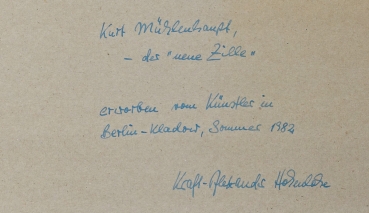 Kurt Mühlenhaupt,
– der "neue Zille"
erworben vom Künstler in
Berlin-Kladow, Sommer 1982
Kraft-Alexander